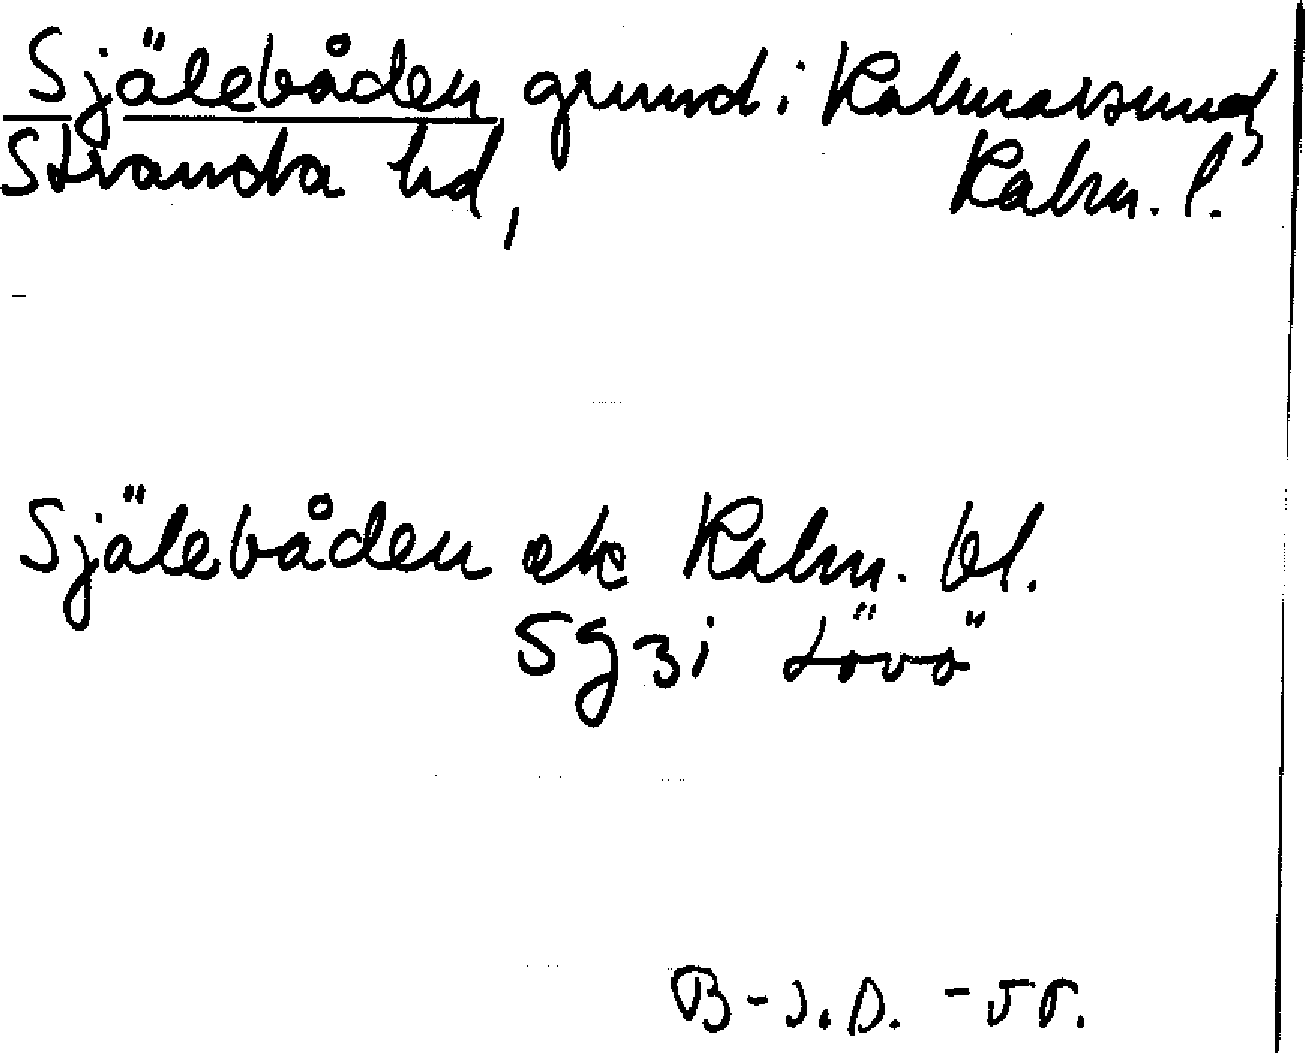 Själebåden, grund i Kalmarsund,
Stranda hd, Kalm. l.
Själebåden ek Kalm. bl.
5g3i Lövö
B-J.D. -55.